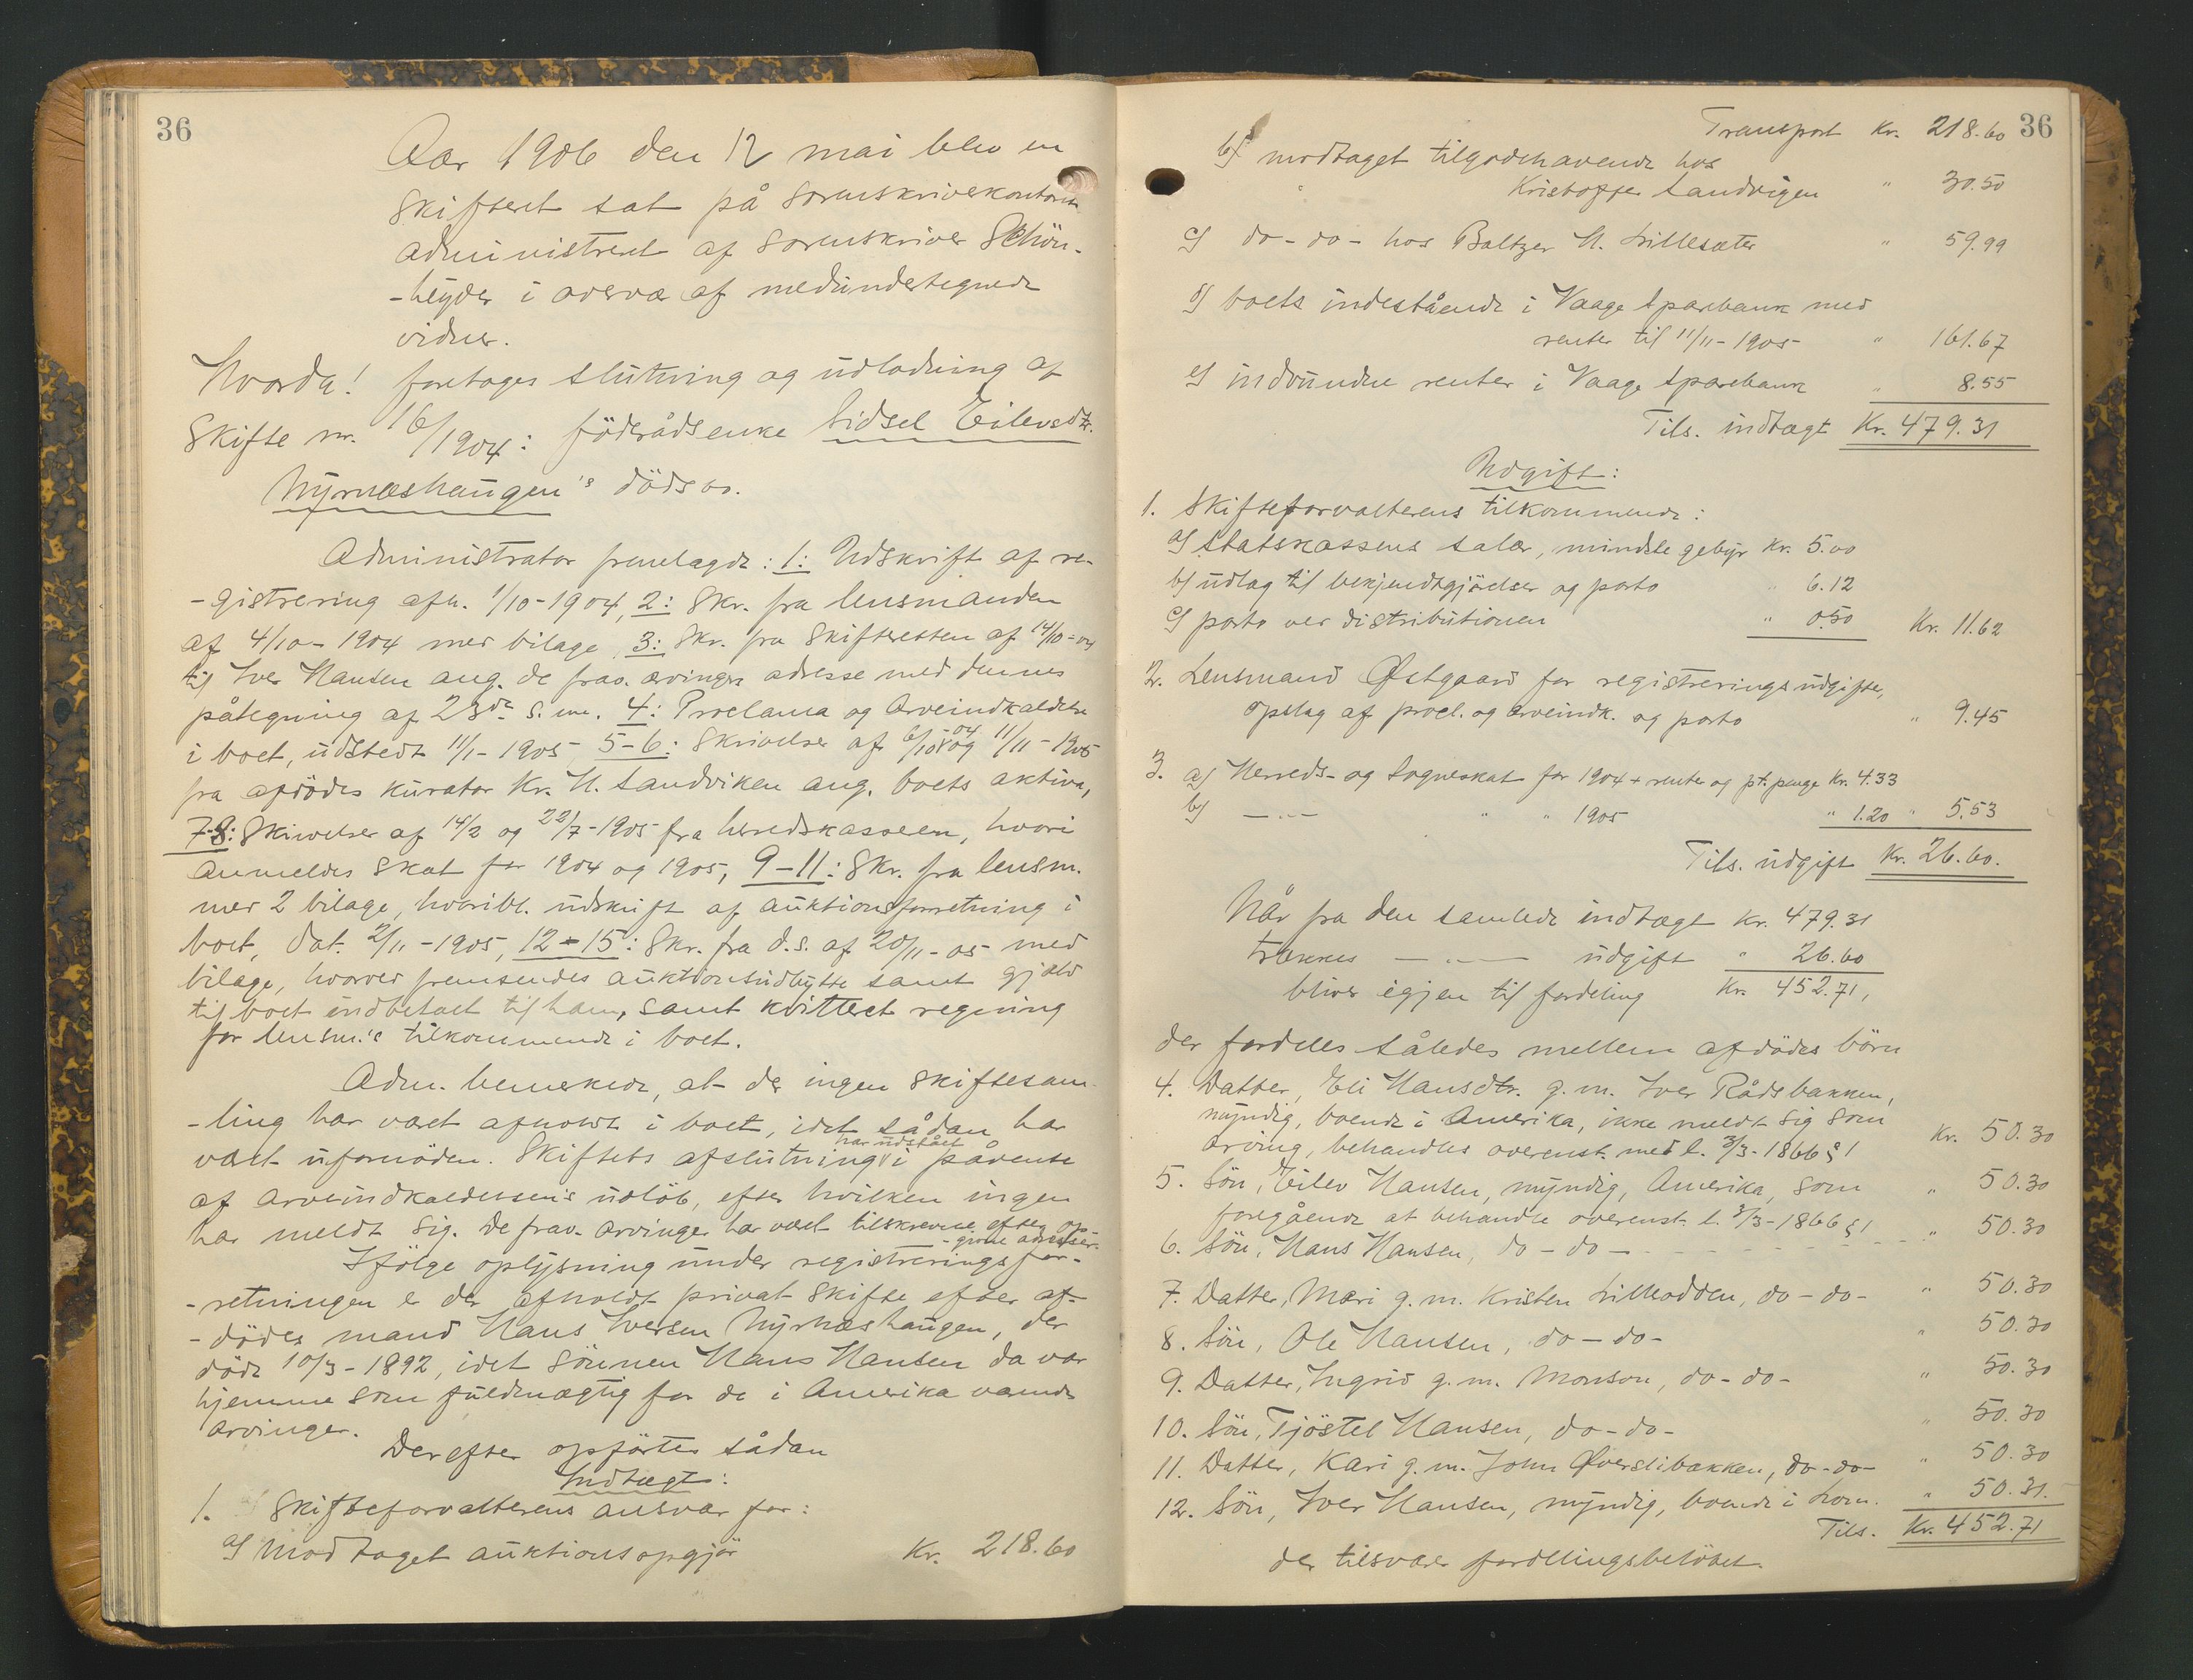 36
Aar 1906 den 12 mai blev en
skifteret sat på sorenskriverkontoret
administreret af sorenskriver Schön-
-heyder i overvær af medundertegnede
vidner.
Hvorda! foretages slutning og udlodning af
Skifte nr. 16/1904: föderådsenke Sidsel Eilevsdtr.
Nyrnæshaugen's dödsbo.
Administrator fremlagde: 1: Udskrift af re-
-gistrering afh. 1/10-1904, 2: Skr. fra lensmanden
af 4/10-1904 med bilage, 3: Skr. fra skifteretten af 14/10-04
til Iver Hansen ang. de frav. arvingers adresse med dennes
påtegning af 23de s. m. 4: Proclama og Arveindkaldelse
i boet, udstedt 11/1-1905, 5-6: Skrivelser af 6/10-04 og 11/11-1905
fra afdödes kurator Kr. H. Sandviken ang. boets aktiva,
7-8: Skrivelser af 14/2 og 22/7-1905 fra herredskasseren, hvori
anmeldes skat for 1904 og 1905, 9-11: Skr. fra lensm.
med 2 bilage, hvoribl. udskrift af auktionsforretning i
boet, dat. 2/11-1905, 12-15: Skr. fra d.s. af 20/11-05 med
bilage, hvorved fremsendes auktionsudbytte samt gjæld
til boet indbetalt til ham, samt kvitteret regning
for lensm.'s tilkommende i boet.
Adm. bemerkede, at der ingen skiftesam-
-ling har været afholdt i boet, idet sådan har
været ufornöden. Skiftets afslutning har udstået i påvente
af arveindkaldelsens udlöb, efter hvilken ingen
har meldt sig. De frav. arvinger har været tilskrevne efter op-
-givne adresser.
Ifölge oplysning under registreringsfor-
-retningen er der afholdt privat skifte efter af-
-dödes mand Hans Iversen Nyrnæshaugen, der
döde 10/3-1892, idet sönnen Hans Hansen da var
hjemme som fuldmægtig for de i Amerika værende
arvinger.
Derefter opförtes sådan
Indtægt:
1. Skifteforvalterens ansvar for:
a) Modtaget auktionsopgjör Kr. 218.60
36
Transport Kr. 218.60
b) modtaget tilgodehavende hos
Kristoffer Sandvigen " 30.50
c) do-do- hos Baltzer H. Lillesæter " 59.99
d) boets indestående i Vaage Sparebank med
renter til 11/11-1905- " 161.67
e) indvundne renter i Vaage Sparebank " 8.55
Tils. indtægt Kr. 479.31
Udgift:
1. Skifteforvalterens tilkommende:
a) Statskassens salær, mindste gebyr Kr. 5.00
b) udlag til bekjendtgjörelser og porto " 6.12
c) porto ved distributionen " 0.50 Kr. 11.62
2. Lensmand Østgaard for registreringsudgifter,
opslag af procl. og arveindk. og porto " 9.45
3. a) Herreds- og Sogneskat for 1904 + renter og pt. penge Kr. 4.33
b) — " — " " 1905 " 1.20 " 5.53
Tils. udgift Kr. 26.60.
Når fra den samlede indtægt Kr. 479.31
trækkes — " — udgift " 26.60
bliver igjen til fordeling Kr. 452.71,
der fordeles således mellem afdödes börn
4. Datter, Eli Hansdtr. g. m. Iver Rådsbakken,
myndig, boende i Amerika, ikke meldt sig som
arving, behandles overenst. med l. 3/3-1866 § 1 Kr. 50.30
5. Sön, Eilev Hansen, myndig, Amerika, som
foregående at behandle overenst. l. 3/3-1866 § 1 " 50.30
6. Sön, Hans Hansen, do-do- " 50.30
7. Datter, Mari g. m. Kristen Lilleodden, do-do- " 50.30
8. Sön, Ole Hansen, do-do- " 50.30
9. Datter, Ingrid g. m. Monson, do-do- " 50.30
10. Sön, Tjöstel Hansen, do-do- " 50.30
11. Datter, Kari g. m. John Øverslibakken, do-do- " 50.30
12. Sön, Iver Hansen, myndig, boende i Lom. " 50.31.
Tils. Kr. 452.71
der tilsvarer fordelingsbelöbet.